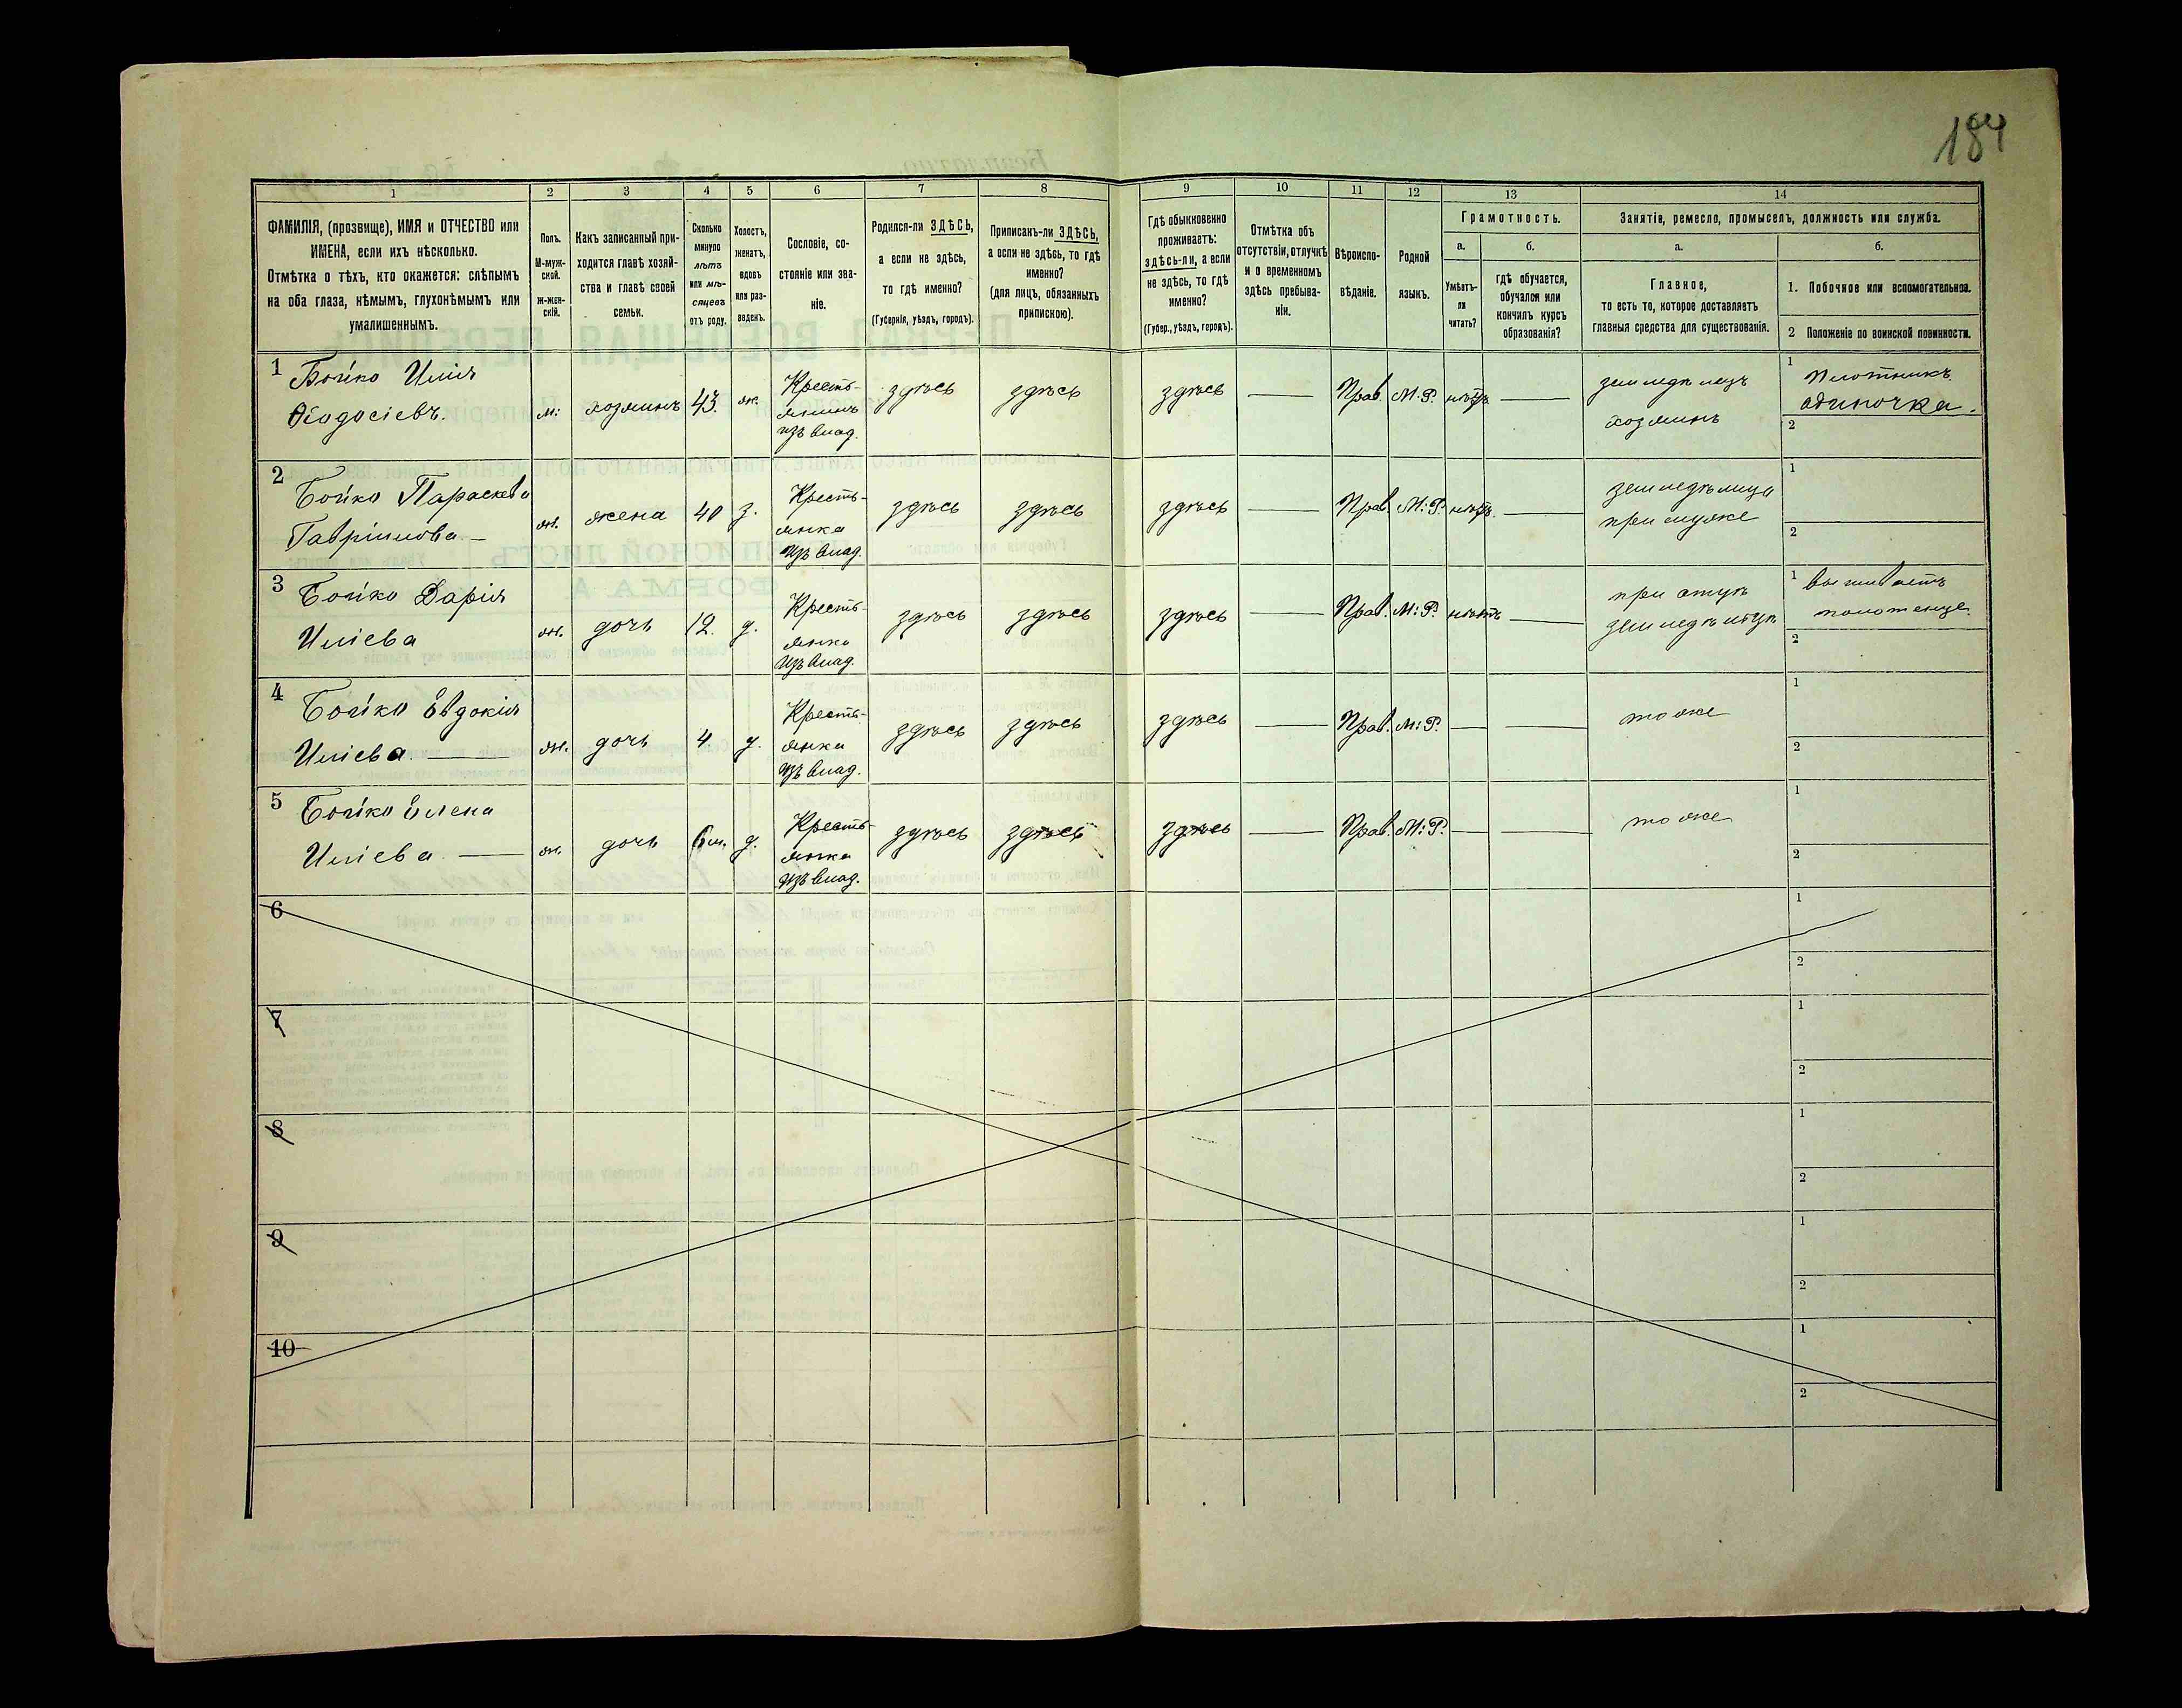 184
1
2
3
4
5
6
7
8
9
10
11
12
13
14
ФАМИЛІЯ, (прозвище), ИМЯ и ОТЧЕСТВО или
ИМЕНА, если ихъ нѣсколько.
Отмѣтка о тѣхъ, кто окажется: слѣпымъ
на оба глаза, нѣмымъ, глухонѣмымъ или
умалишеннымъ.
Полъ.
М-муж-
ской.
ж-жен-
скій.
Какъ записанный при-
ходится главѣ хозяй-
ства и главѣ своей
семьи.
Сколько
минуло
лѣтъ
или мѣ-
сяцевъ
отъ роду.
Холостъ,
женатъ,
вдовъ
или раз-
веденъ.
Сословіе, со-
стояніе или зва-
ніе.
Родился-ли ЗДѢСЬ,
а если не здѣсь,
то гдѣ именно?
(Губернія, уѣздъ, городъ).
Приписанъ-ли ЗДѢСЬ,
а если не здѣсь, то гдѣ
именно?
(для лицъ, обязанныхъ
припискою).
Гдѣ обыкновенно
проживаетъ:
здѣсь-ли, а если
не здѣсь, то гдѣ
именно?
(Губер., уѣздъ, городъ).
Отмѣтка объ
отсутствіи, отлучкѣ
и о временномъ
здѣсь пребыва-
ніи.
Вѣроиспо-
вѣданіе.
Родной
языкъ.
Грамотность.
а.
б.
Умѣетъ-
ли
читать?
гдѣ обучается,
обучался или
кончилъ курсъ
образованія?
Занятіе, ремесло, промыселъ, должность или служба.
а.
б.
Главное,
то есть то, которое доставляетъ
главныя средства для существованія.
1. Побочное или вспомогательное.
2 Положеніе по воинской повинности.
1 Бойко Илія
Ѳеодосіевъ.
м:
хозяинъ
43.
ж.
Кресть-
янинъ
изъ влад.
здѣсь
здѣсь
здѣсь
Прав.
М.Р.
нѣтъ
земледѣлецъ
хозяинъ
1 Плотникъ
одиночка.
2
2 Бойко Параскева
Гавріилова
ж.
жена
40
з.
Кресть-
янка
изъ влад.
здѣсь
здѣсь
здѣсь
Прав.
М:Р.
нѣтъ.
земледѣлица
при мужѣ
1
2
3 Бойко Дарія
Иліева
ж.
дочь
12.
д.
Кресть-
янка
изъ влад.
здѣсь
здѣсь
здѣсь
Прав.
М:Р.
нѣтъ
при отцѣ
земледѣльцѣ
1 вышиваетъ
полотенце.
2
4 Бойко Евдокія
Иліева.
ж.
дочь
4
д.
Кресть-
янка
изъ влад.
здѣсь
здѣсь
здѣсь
Прав.
М:Р.
тоже
1
2
5 Бойко Елена
Иліева
ж.
дочь
6 м.
д.
Кресть-
янка
изъ влад.
здѣсь
здѣсь
здѣсь
Прав.
М:Р.
тоже
1
2
6
1
2
7
1
2
8
1
2
9
1
2
10
1
2